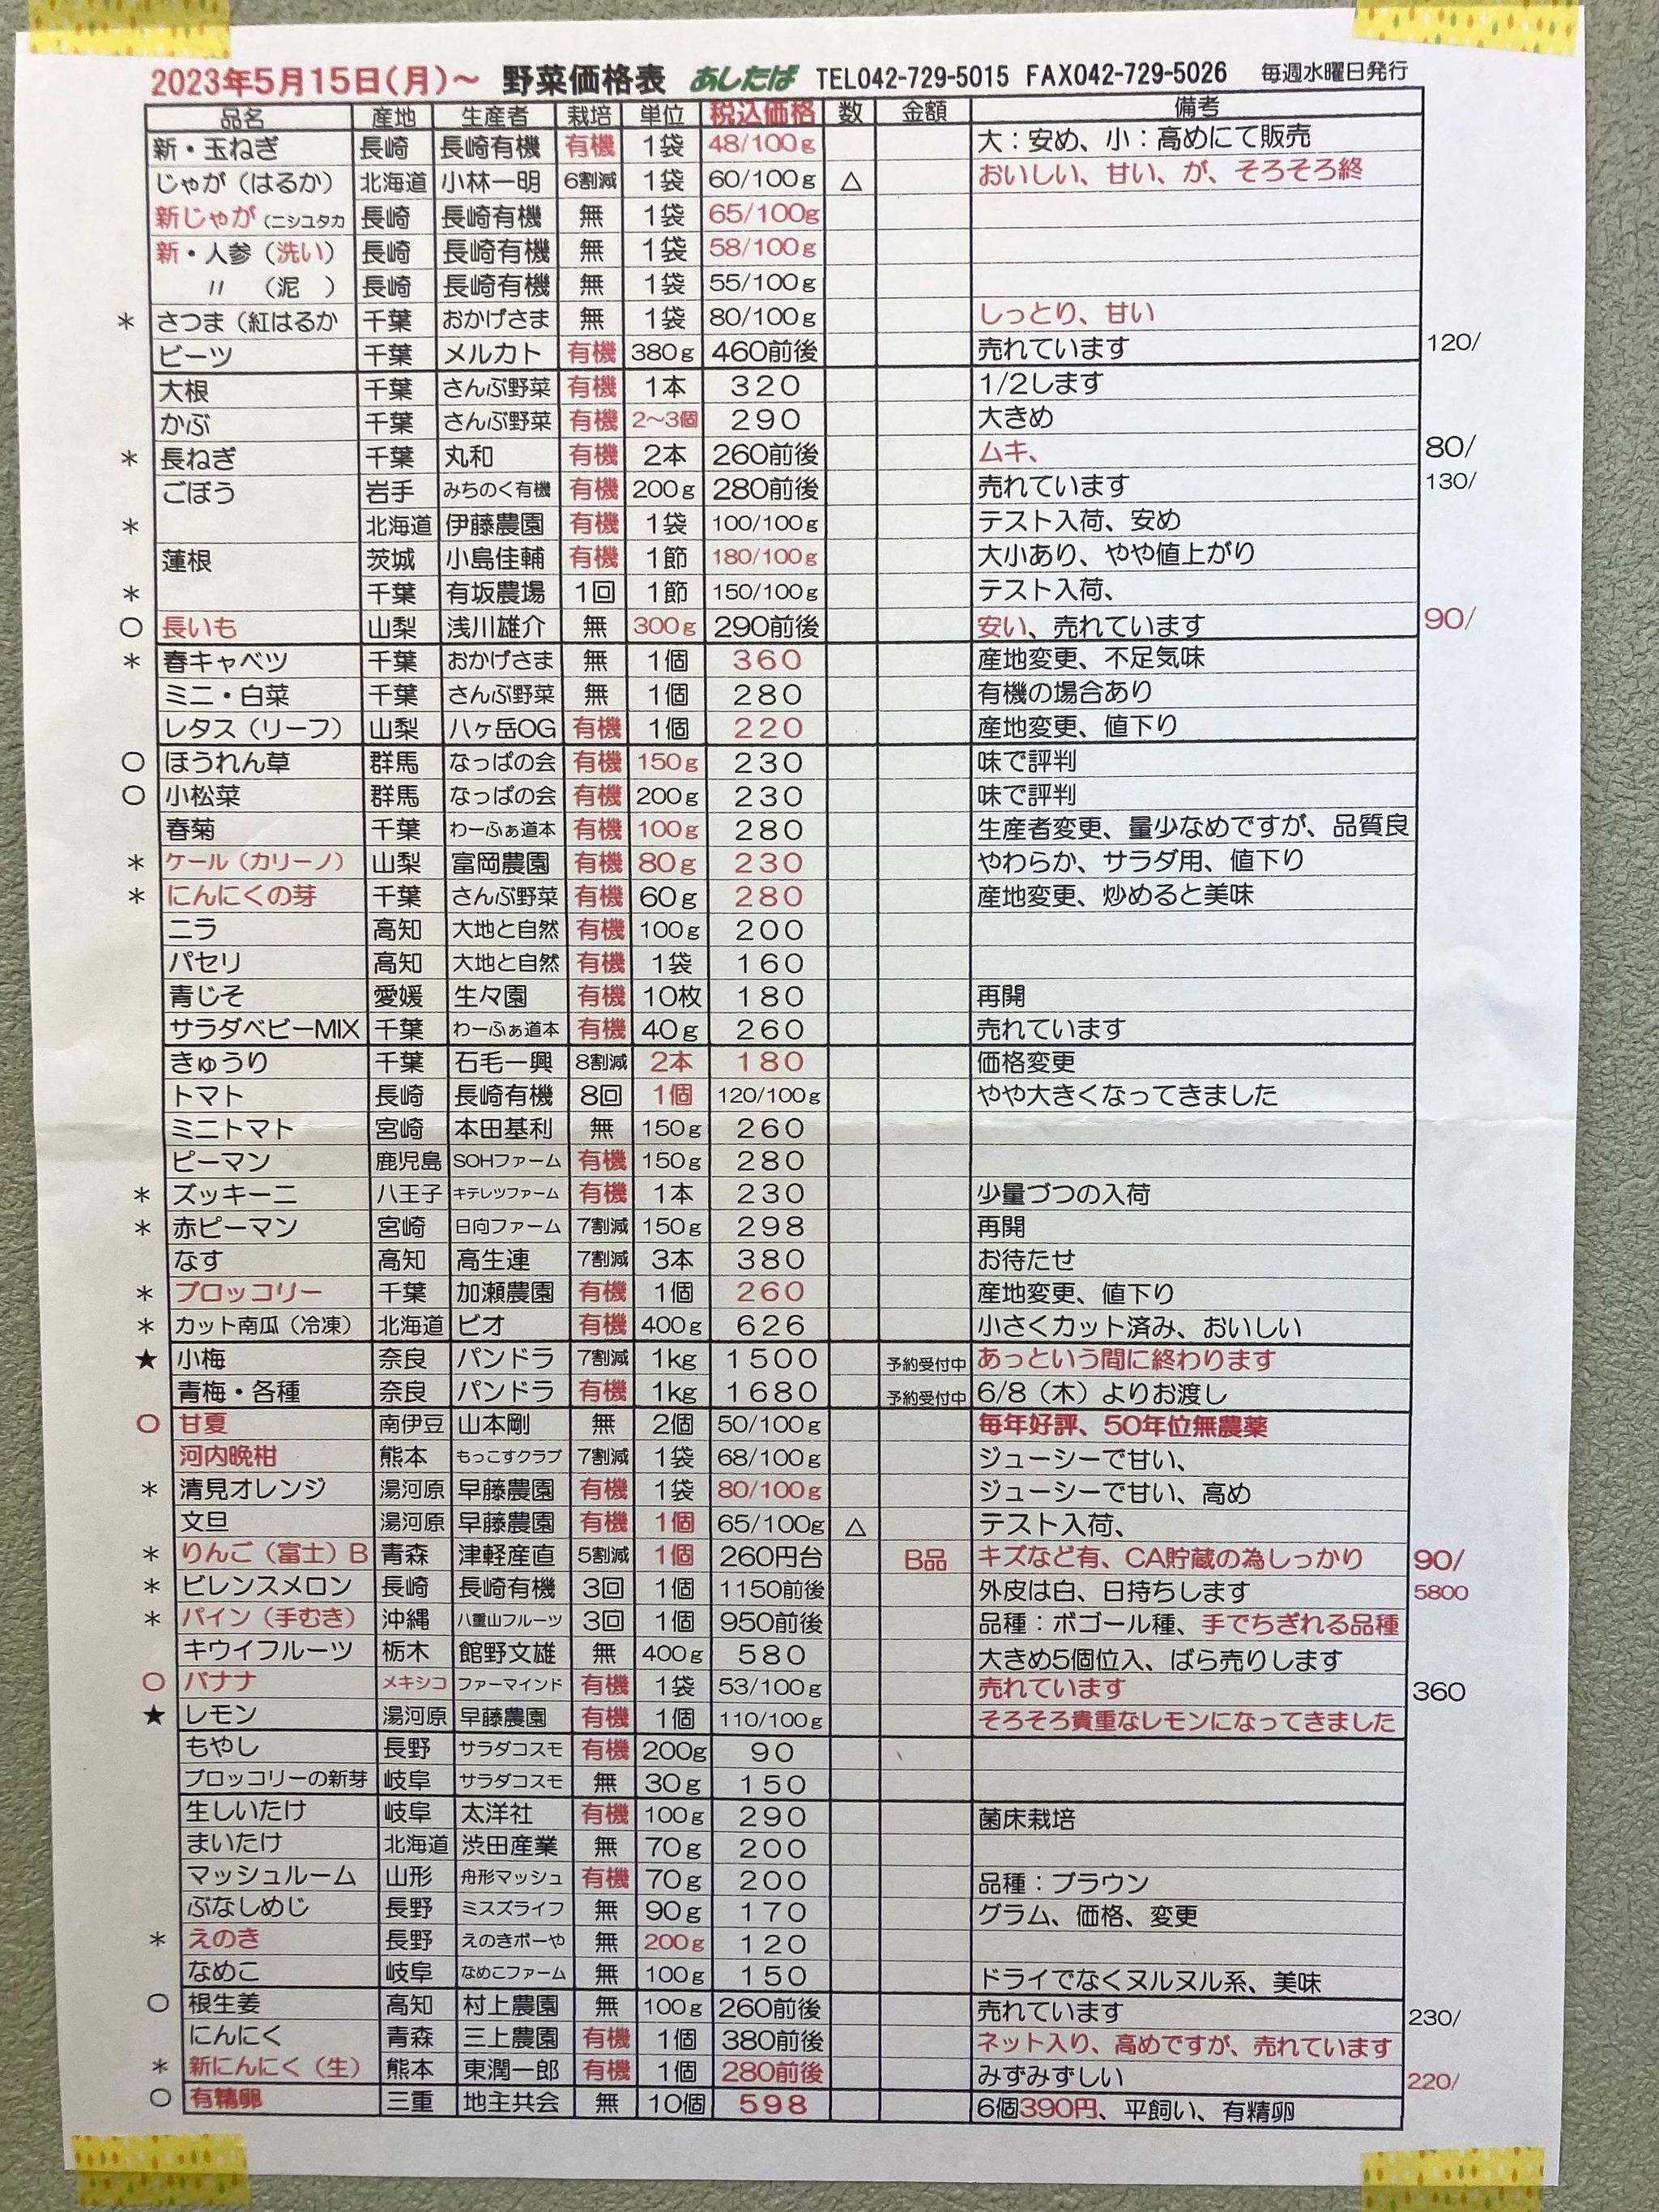 2023年5月15日(月)～ 野菜価格表 あしたば TEL042-729-5015 FAX042-729-5026 毎週水曜日発行
品名 産地 生産者 栽培 単位 税込価格 数 金額 備考
新・玉ねぎ 長崎 長崎有機 有機 1袋 48/100g 大：安め、小：高めにて販売
じゃが（はるか） 北海道 小林一明 6割減 1袋 60/100g △ おいしい、甘い、が、そろそろ終
新じゃが（ニシユタカ 長崎 長崎有機 無 1袋 65/100g
新・人参（洗い） 長崎 長崎有機 無 1袋 58/100g
〃 （泥 ） 長崎 長崎有機 無 1袋 55/100g
＊ さつま（紅はるか 千葉 おかげさま 無 1袋 80/100g しっとり、甘い
ビーツ 千葉 メルカト 有機 380g 460前後 売れています 120/
大根 千葉 さんぶ野菜 有機 1本 320 1/2します
かぶ 千葉 さんぶ野菜 有機 2～3個 290 大きめ
＊ 長ねぎ 千葉 丸和 有機 2本 260前後 ムキ、 80/
ごぼう 岩手 みちのく有機 有機 200g 280前後 売れています 130/
＊ 北海道 伊藤農園 有機 1袋 100/100g テスト入荷、安め
蓮根 茨城 小島佳輔 有機 1節 180/100g 大小あり、やや値上がり
＊ 千葉 有坂農場 1回 1節 150/100g テスト入荷、
○ 長いも 山梨 浅川雄介 無 300g 290前後 安い、売れています 90/
＊ 春キャベツ 千葉 おかげさま 無 1個 360 産地変更、不足気味
ミニ・白菜 千葉 さんぶ野菜 無 1個 280 有機の場合あり
レタス（リーフ） 山梨 八ヶ岳OG 有機 1個 220 産地変更、値下り
○ ほうれん草 群馬 なっぱの会 有機 150g 230 味で評判
○ 小松菜 群馬 なっぱの会 有機 200g 230 味で評判
春菊 千葉 わーふぁ道本 有機 100g 280 生産者変更、量少なめですが、品質良
＊ ケール（カリーノ） 山梨 富岡農園 有機 80g 230 やわらか、サラダ用、値下り
＊ にんにくの芽 千葉 さんぶ野菜 有機 60g 280 産地変更、炒めると美味
ニラ 高知 大地と自然 有機 100g 200
パセリ 高知 大地と自然 有機 1袋 160
青じそ 愛媛 生々園 有機 10枚 180 再開
サラダベビーMIX 千葉 わーふぁ道本 有機 40g 260 売れています
きゅうり 千葉 石毛一興 8割減 2本 180 価格変更
トマト 長崎 長崎有機 8回 1個 120/100g やや大きくなってきました
ミニトマト 宮崎 本田基利 無 150g 260
ピーマン 鹿児島 SOHファーム 有機 150g 280
＊ ズッキーニ 八王子 キテレツファーム 有機 1本 230 少量づつの入荷
＊ 赤ピーマン 宮崎 日向ファーム 7割減 150g 298 再開
なす 高知 高生連 7割減 3本 380 お待たせ
＊ ブロッコリー 千葉 加瀬農園 有機 1個 260 産地変更、値下り
＊ カット南瓜（冷凍） 北海道 ビオ 有機 400g 626 小さくカット済み、おいしい
★ 小梅 奈良 パンドラ 7割減 1kg 1500 予約受付中 あっという間に終わります
青梅・各種 奈良 パンドラ 有機 1kg 1680 予約受付中 6/8（木）よりお渡し
○ 甘夏 南伊豆 山本剛 無 2個 50/100g 毎年好評、50年位無農薬
河内晩柑 熊本 もっこすクラブ 7割減 1袋 68/100g ジューシーで甘い、
＊ 清見オレンジ 湯河原 早藤農園 有機 1袋 80/100g ジューシーで甘い、高め
文旦 湯河原 早藤農園 有機 1個 65/100g △ テスト入荷、
＊ りんご（富士）B 青森 津軽産直 5割減 1個 260円台 B品 キズなど有、CA貯蔵の為しっかり 90/
＊ ビレンスメロン 長崎 長崎有機 3回 1個 1150前後 外皮は白、日持ちします 5800
＊ パイン（手むき） 沖縄 八重山フルーツ 3回 1個 950前後 品種：ボゴール種、手でちぎれる品種
キウイフルーツ 栃木 館野文雄 無 400g 580 大きめ5個位入、ばら売りします
○ バナナ メキシコ ファーマインド 有機 1袋 53/100g 売れています 360
★ レモン 湯河原 早藤農園 有機 1個 110/100g そろそろ貴重なレモンになってきました
もやし 長野 サラダコスモ 有機 200g 90
ブロッコリーの新芽 岐阜 サラダコスモ 無 30g 150
生しいたけ 岐阜 太洋社 有機 100g 290 菌床栽培
まいたけ 北海道 渋田産業 無 70g 200
マッシュルーム 山形 舟形マッシュ 有機 70g 200 品種：ブラウン
ぶなしめじ 長野 ミスズライフ 無 90g 170 グラム、価格、変更
＊ えのき 長野 えのきボーや 無 200g 120
なめこ 岐阜 なめこファーム 無 100g 150 ドライでなくヌルヌル系、美味
○ 根生姜 高知 村上農園 無 100g 260前後 売れています 230/
にんにく 青森 三上農園 有機 1個 380前後 ネット入り、高めですが、売れています
＊ 新にんにく（生） 熊本 東潤一郎 有機 1個 280前後 みずみずしい 220/
○ 有精卵 三重 地主共会 無 10個 598 6個390円、平飼い、有精卵